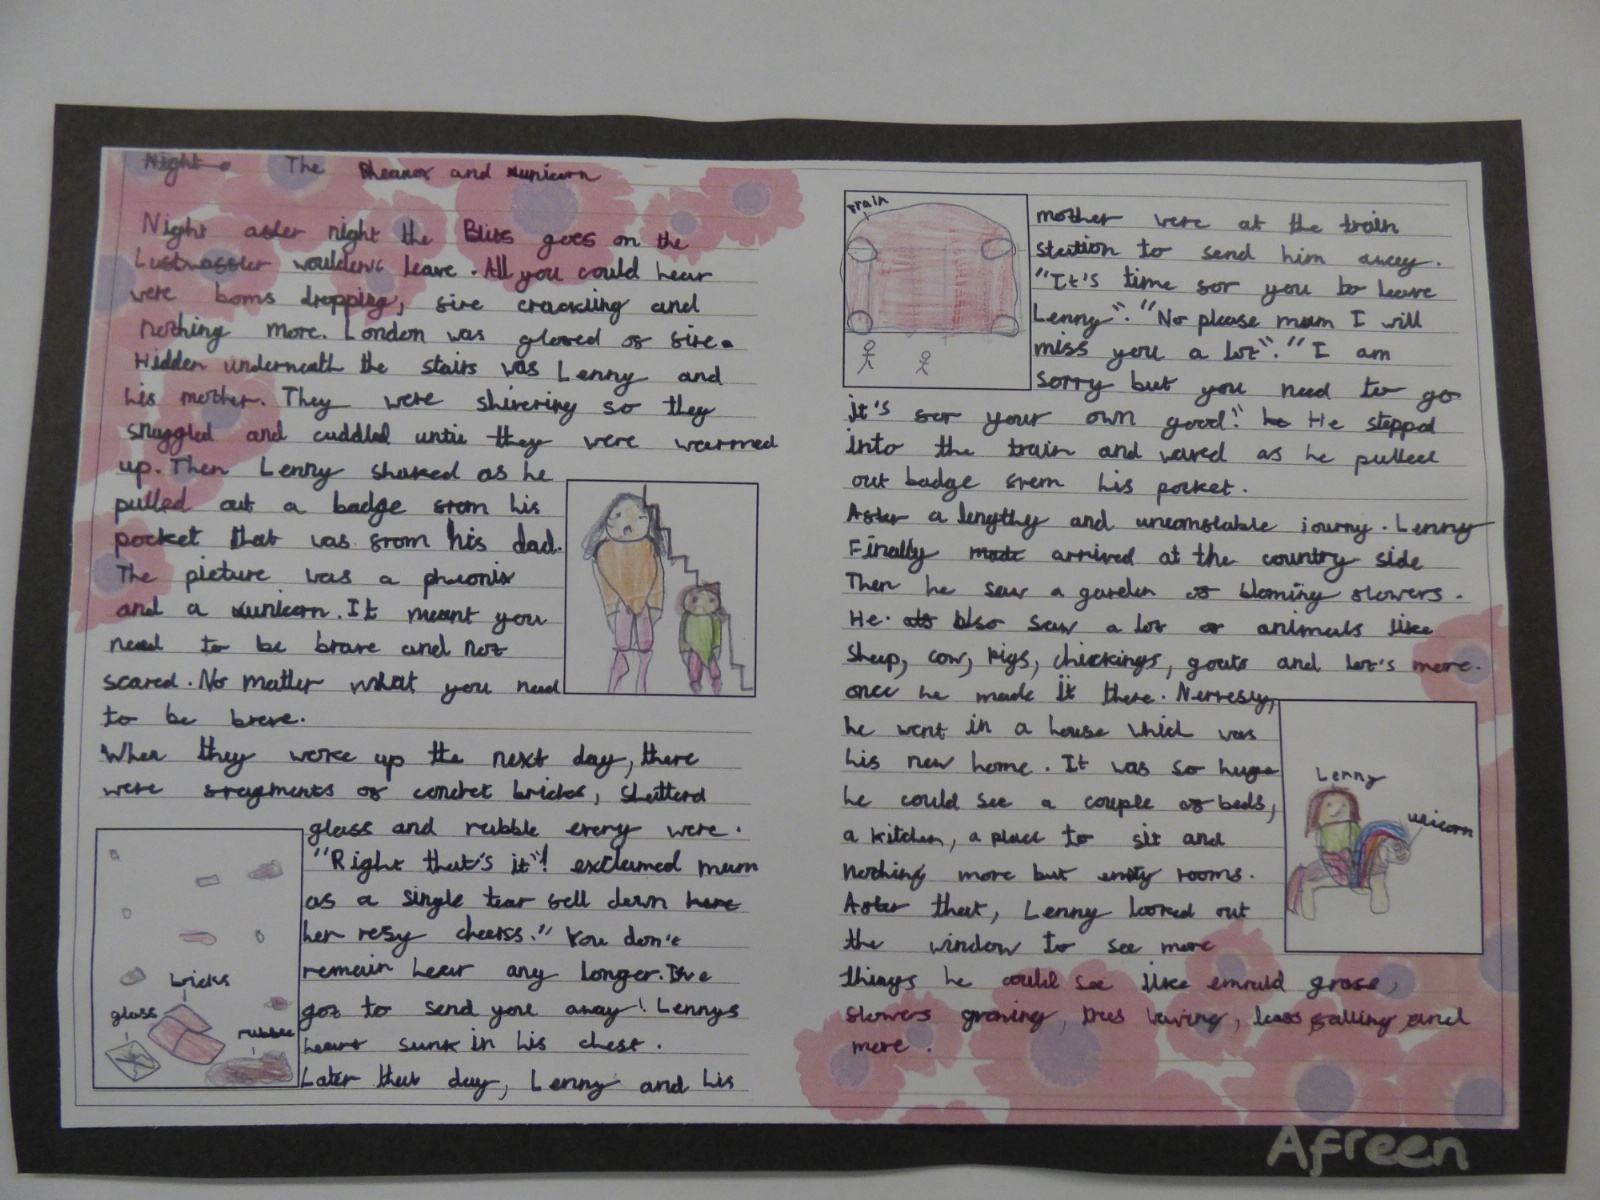 Night The Pheanox and xunicorn
Night aster night the Blits goes on the
Lustwasster wouldent leave. All you could hear
were boms dropping, sire crackling and
nothing more. London was glowed os sire.
Hidden underneath the stairs was Lenny and
his mother. They were shivering so they
snuggled and cuddled untie they were warmed
up. Then Lenny shaked as he
pulled out a badge srom his
pocket that was srom his dad.
The picture was a pheonix
and a xunicorn. It meant you
need to be brave and not
scared. No matter what you need
to be breve.
When they woke up the next day, there
were sragments os concret bricks, shatterd
glass and rubble every were.
"Right that's it"! exclaimed mum
as a single tear sell down here
her rosy cheeks." You don't
remain hear any longer. I've
got to send you away! Lennys
heart sunk in his chest.
Later that day, Lenny and his
bricks
glass
rubble
train
mother were at the train
station to send him away.
"It's time sor you to leave
Lenny". "No please mum I will
miss you a lot". "I am
sorry but you need to go
it's sor your own good". he He stepped
into the train and waved as he pulled
out badge srem his pocket.
Aster a lengthy and uncomstable journy. Lenny
Finally made arrived at the country side
Then he saw a garden os bloming slowers.
He. also saw a lot or animals like
sheep, cow, pigs, chickings, goats and lot's more.
once he made it there. Nerresly,
he went in a house which was
his new home. It was so huge
he could see a couple os beds,
a kitchen, a place to sit and
nothing more but emty rooms.
Aster that, Lenny looked out
the window to see more
things he could see like emrald grass,
slowers growing, trees waving, leass salling and
more.
Lenny
unicorn
Afreen